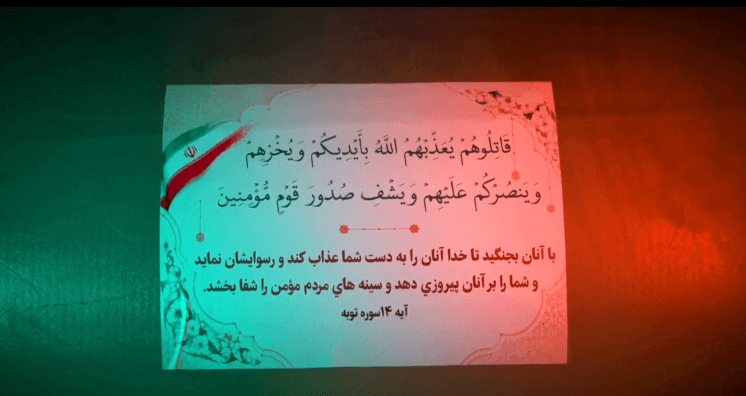 قَاتِلُوهُمْ يُعَذِّبْهُمُ اللَّهُ بِأَيْدِيكُمْ وَيُخْزِهِمْ
وَيَنصُرْكُمْ عَلَيْهِمْ وَيَشْفِ صُدُورَ قَوْمٍ مُّؤْمِنِينَ
با آنان بجنگید تا خدا آنان را به دست شما عذاب کند و رسوایشان نماید
و شما را بر آنان پیروزي دهد و سینه هاي مردم مؤمن را شفا بخشد.
آیه ۱۴سوره توبه